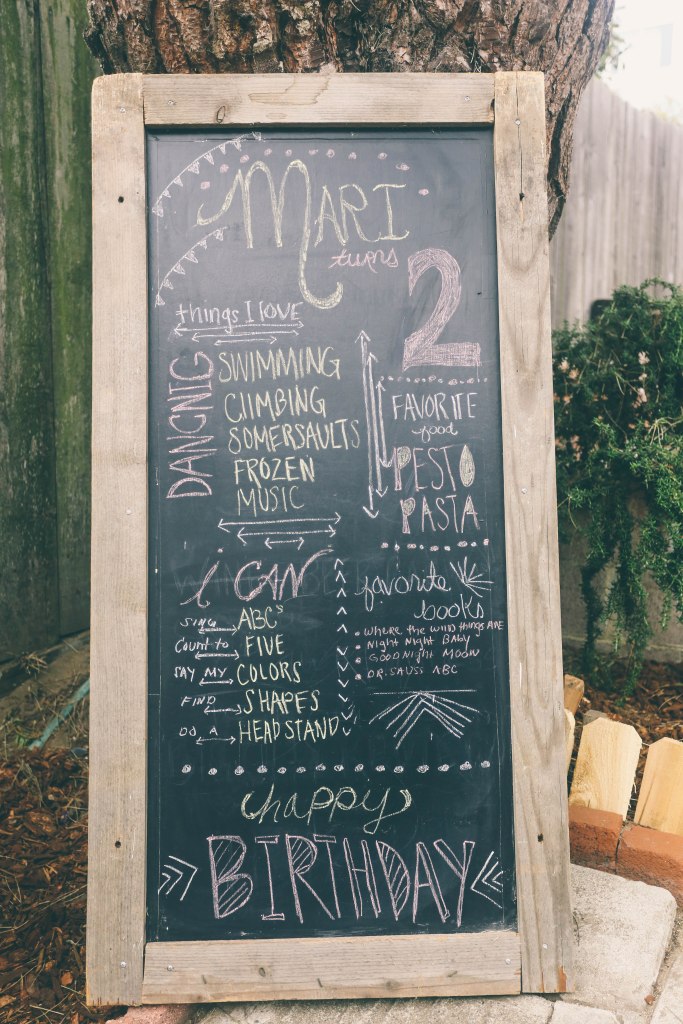 MARI
turns
2
things I love
DANCNIG
SWIMMING
ClIMBING
SOMERSAULTS
FROZEN
MUSIC
FAVORITE
food
PESTO
PASTA
i CAN
SING ABC's
COUNT to FIVE
SAY MY COLORS
FIND SHAPES
DO A HEADSTAND
favorite
books
• WHERE THE WILD THINGS ARE
• NIGHT NIGHT BABY
• GOODNIGHT MOON
• DR. SAUSS ABC
happy
BIRTHDAY